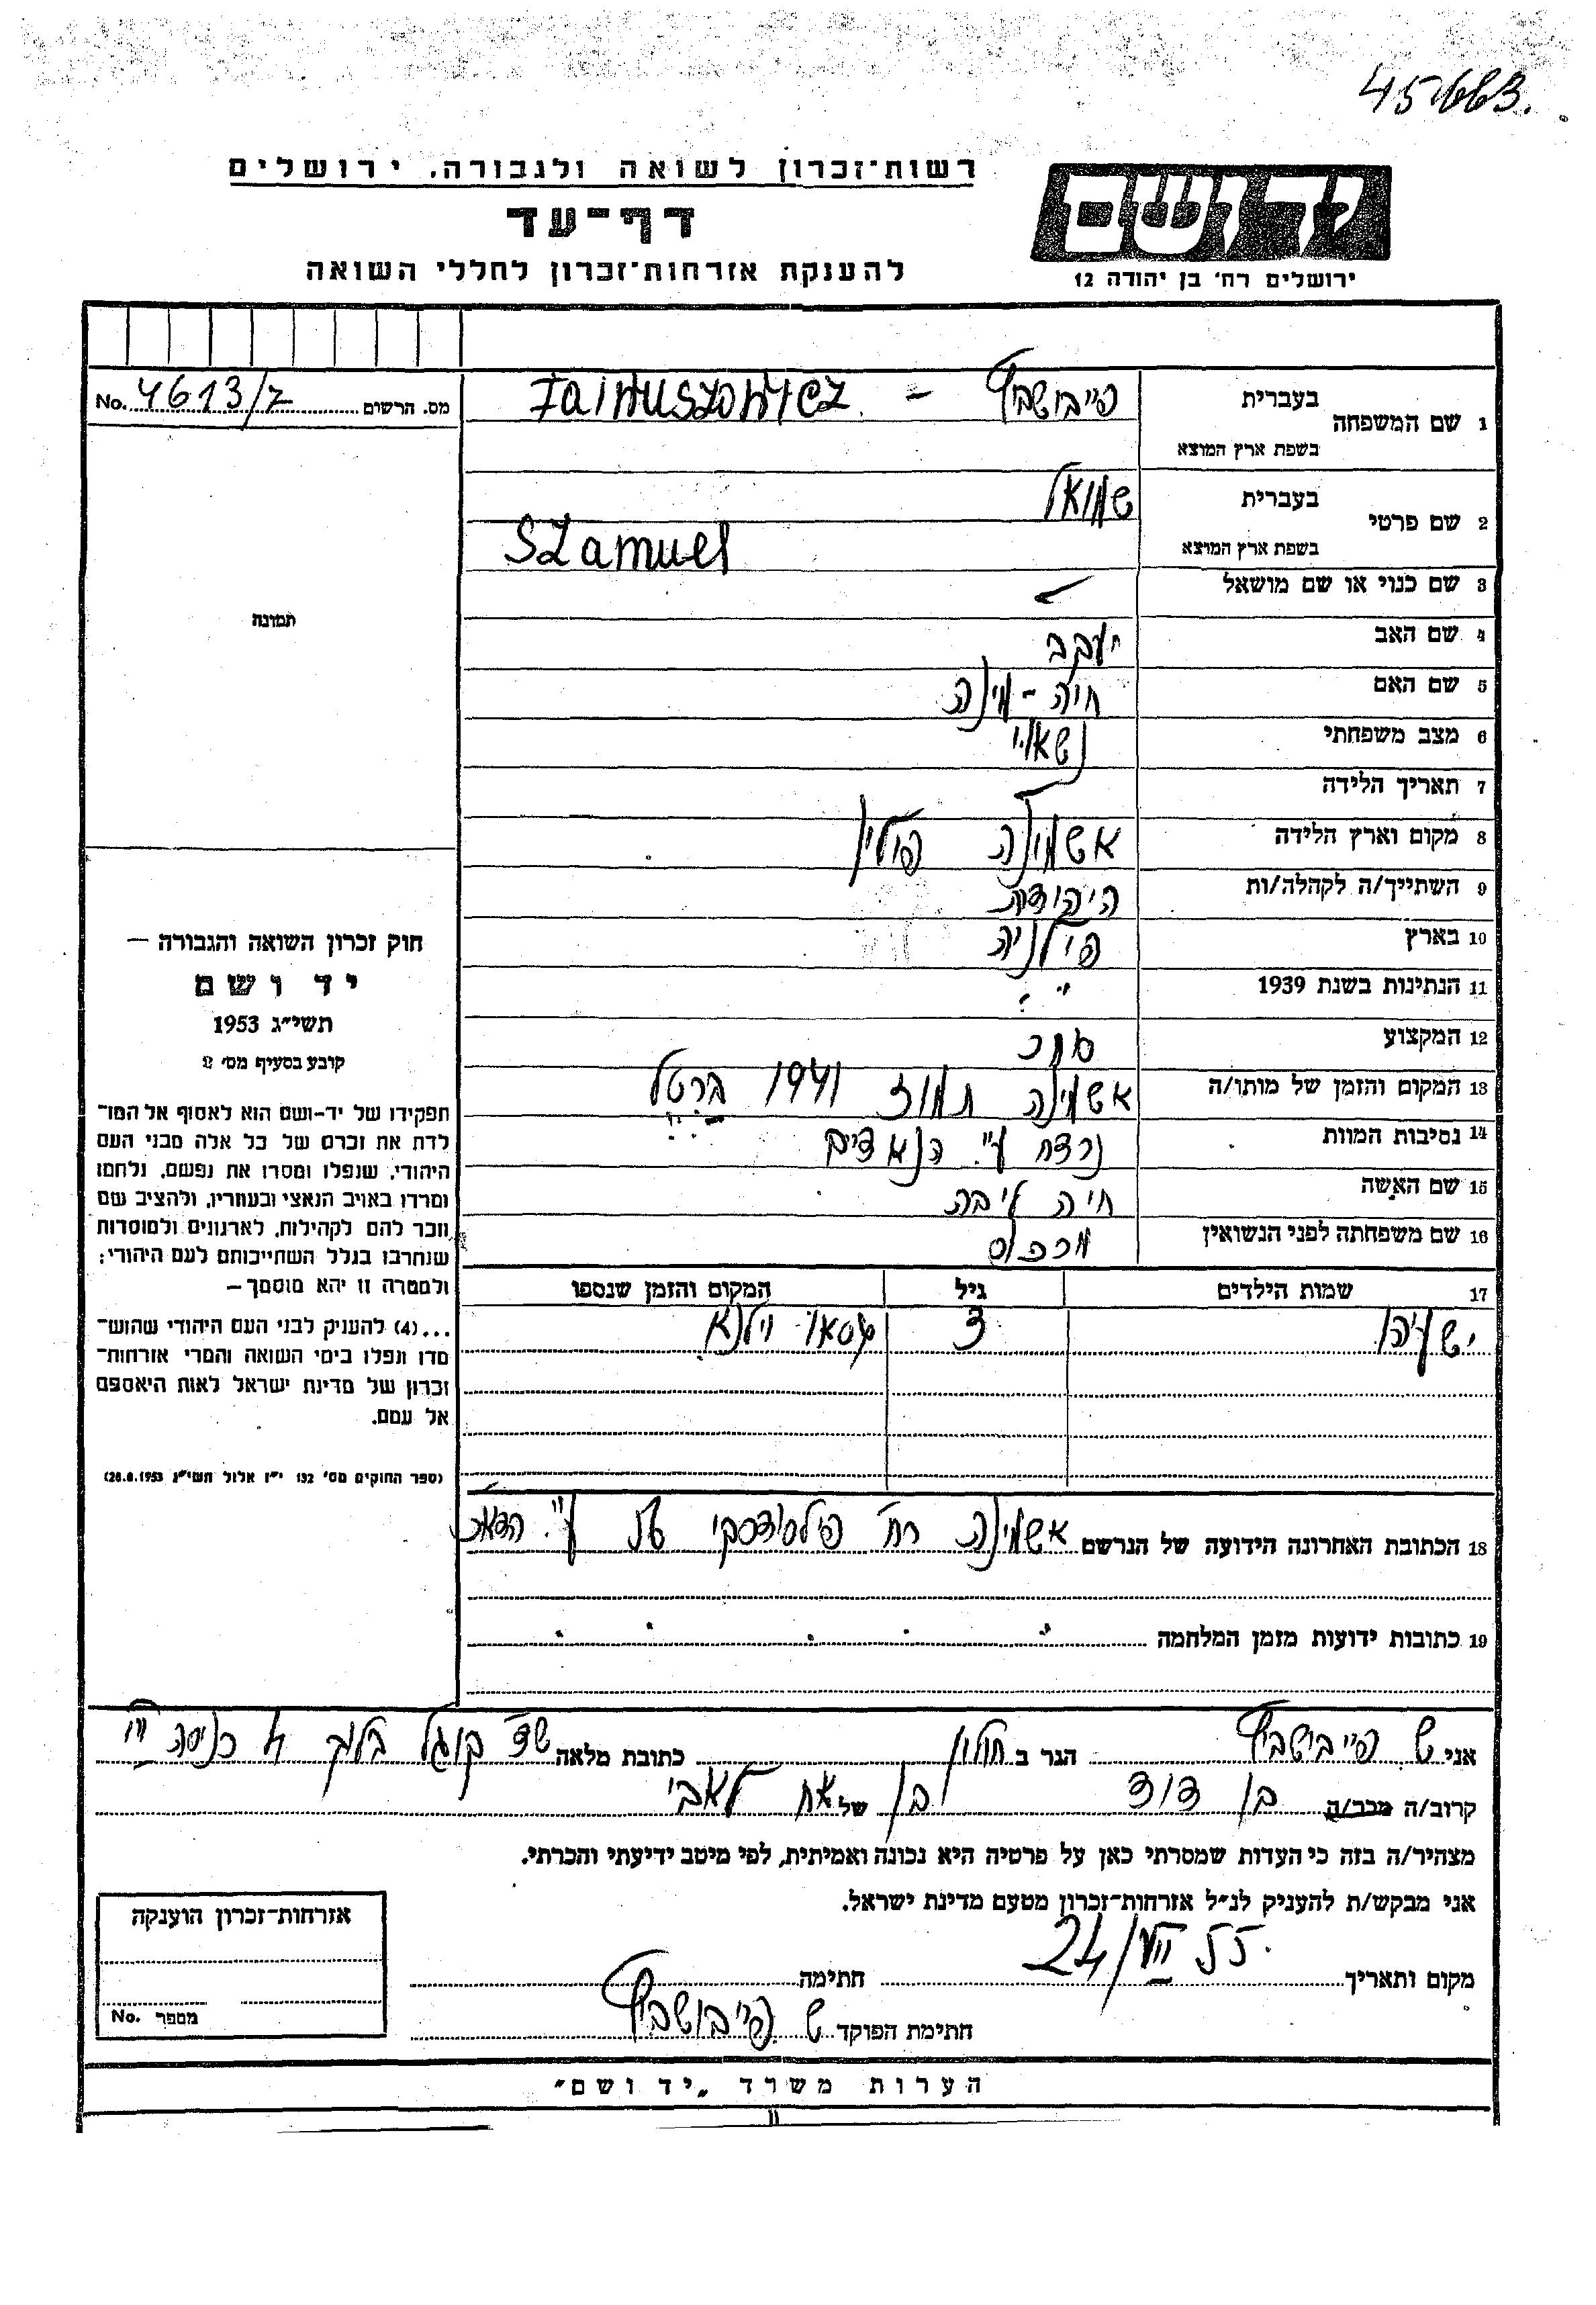 45663.
רשות־זכרון לשואה ולגבורה, ירושלים
דף־עד
להענקת אזרחות־זכרון לחללי השואה
יד ושם
ירושלים רח' בן יהודה 12
מס. הרשום No. 4613/7
1 שם המשפחה בעברית פייבושביץ – Fainuszowicz
בשפת ארץ המוצא
2 שם פרטי בעברית שמואל
בשפת ארץ המוצא Szamuel
3 שם כנוי או שם מושאל
4 שם האב יעקב
5 שם האם חיה - מינה
6 מצב משפחתי נשאוי
7 תאריך הלידה
8 מקום וארץ הלידה אשמינה פולין
9 השתייך/ה לקהלה/ות היהודית
10 בארץ פולניה
11 הנתינות בשנת 1939 "
12 המקצוע סוחר
13 המקום והזמן של מותו/ה אשמינה תמוז 1941 ברטל
14 נסיבות המוות נרצח ע"י הנאצים
15 שם האשה חיה ליבה
16 שם משפחתה לפני הנשואין
17 שמות הילדים גיל המקום והזמן שנספו
ישעיהו 3 וילנא
תמונה
חוק זכרון השואה והגבורה —
יד ושם
תשי"ג 1953
קובע בסעיף מס' 2
תפקידו של יד-ושם הוא לאסוף אל המו־
לדת את זכרם של כל אלה מבני העם
היהודי, שנפלו ומסרו את נפשם, נלחמו
ומרדו באויב הנאצי ובעוזריו, ולהציב שם
וזכר להם לקהילות, לארגונים ולמוסדות
שנחרבו בגלל השתייכותם לעם היהודי;
ולמטרה זו יהא מוסמך—
...(4) להעניק לבני העם היהודי שהוש־
מדו ונפלו בימי השואה והמרי אזרחות־
זכרון של מדינת ישראל לאות היאספם
אל עמם.
(ספר החוקים מס' 132 י"ז אלול תשי"ג 28.8.1953)
18 הכתובת האחרונה הידועה של הנרשם אשמינה רח' פילסודסקי ע"י הדאר
19 כתובות ידועות מזמן המלחמה
אני ש פייבישביץ הגר ב חולון כתובת מלאה שד קוגל בלוק 4 כניסה III
קרוב/ה מכר/ה בן דוד של בן אח לאבי
מצהיר/ה בזה כי העדות שמסרתי כאן על פרטיה היא נכונה ואמיתית, לפי מיטב ידיעתי והכרתי.
אני מבקש/ת להעניק לנ"ל אזרחות־זכרון מטעם מדינת ישראל.
מקום ותאריך 24/VII 55 חתימה
חתימת הפוקד ש פייבושביץ
אזרחות־זכרון הוענקה
מספר No.
הערות משרד „יד ושם"